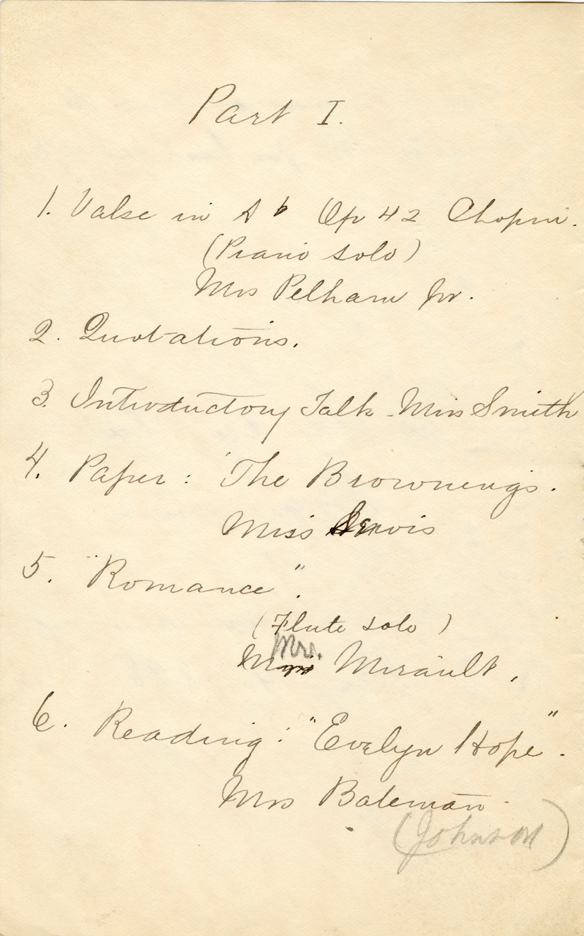 Part I.
1. Valse in A♭ Op 42 Chopin.
(Piano solo)
Mrs Pelham Jr.
2. Quotations.
3. Introductory Talk - Miss Smith
4. Paper: "The Brownings.
Miss
5. "Romance".
(Flute solo)
Mrs.
Mirault.
6. Reading: "Evelyn Hope".
Mrs Bateman
(Johnson)